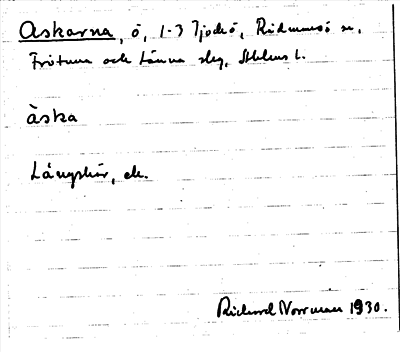 Askarna, ö, 1-3 Tjockö, Rådmansö sn,
Frötuna och Länna skg, Sthlms l.
àska
Långskär, ek.
Richard Norrman 1930.